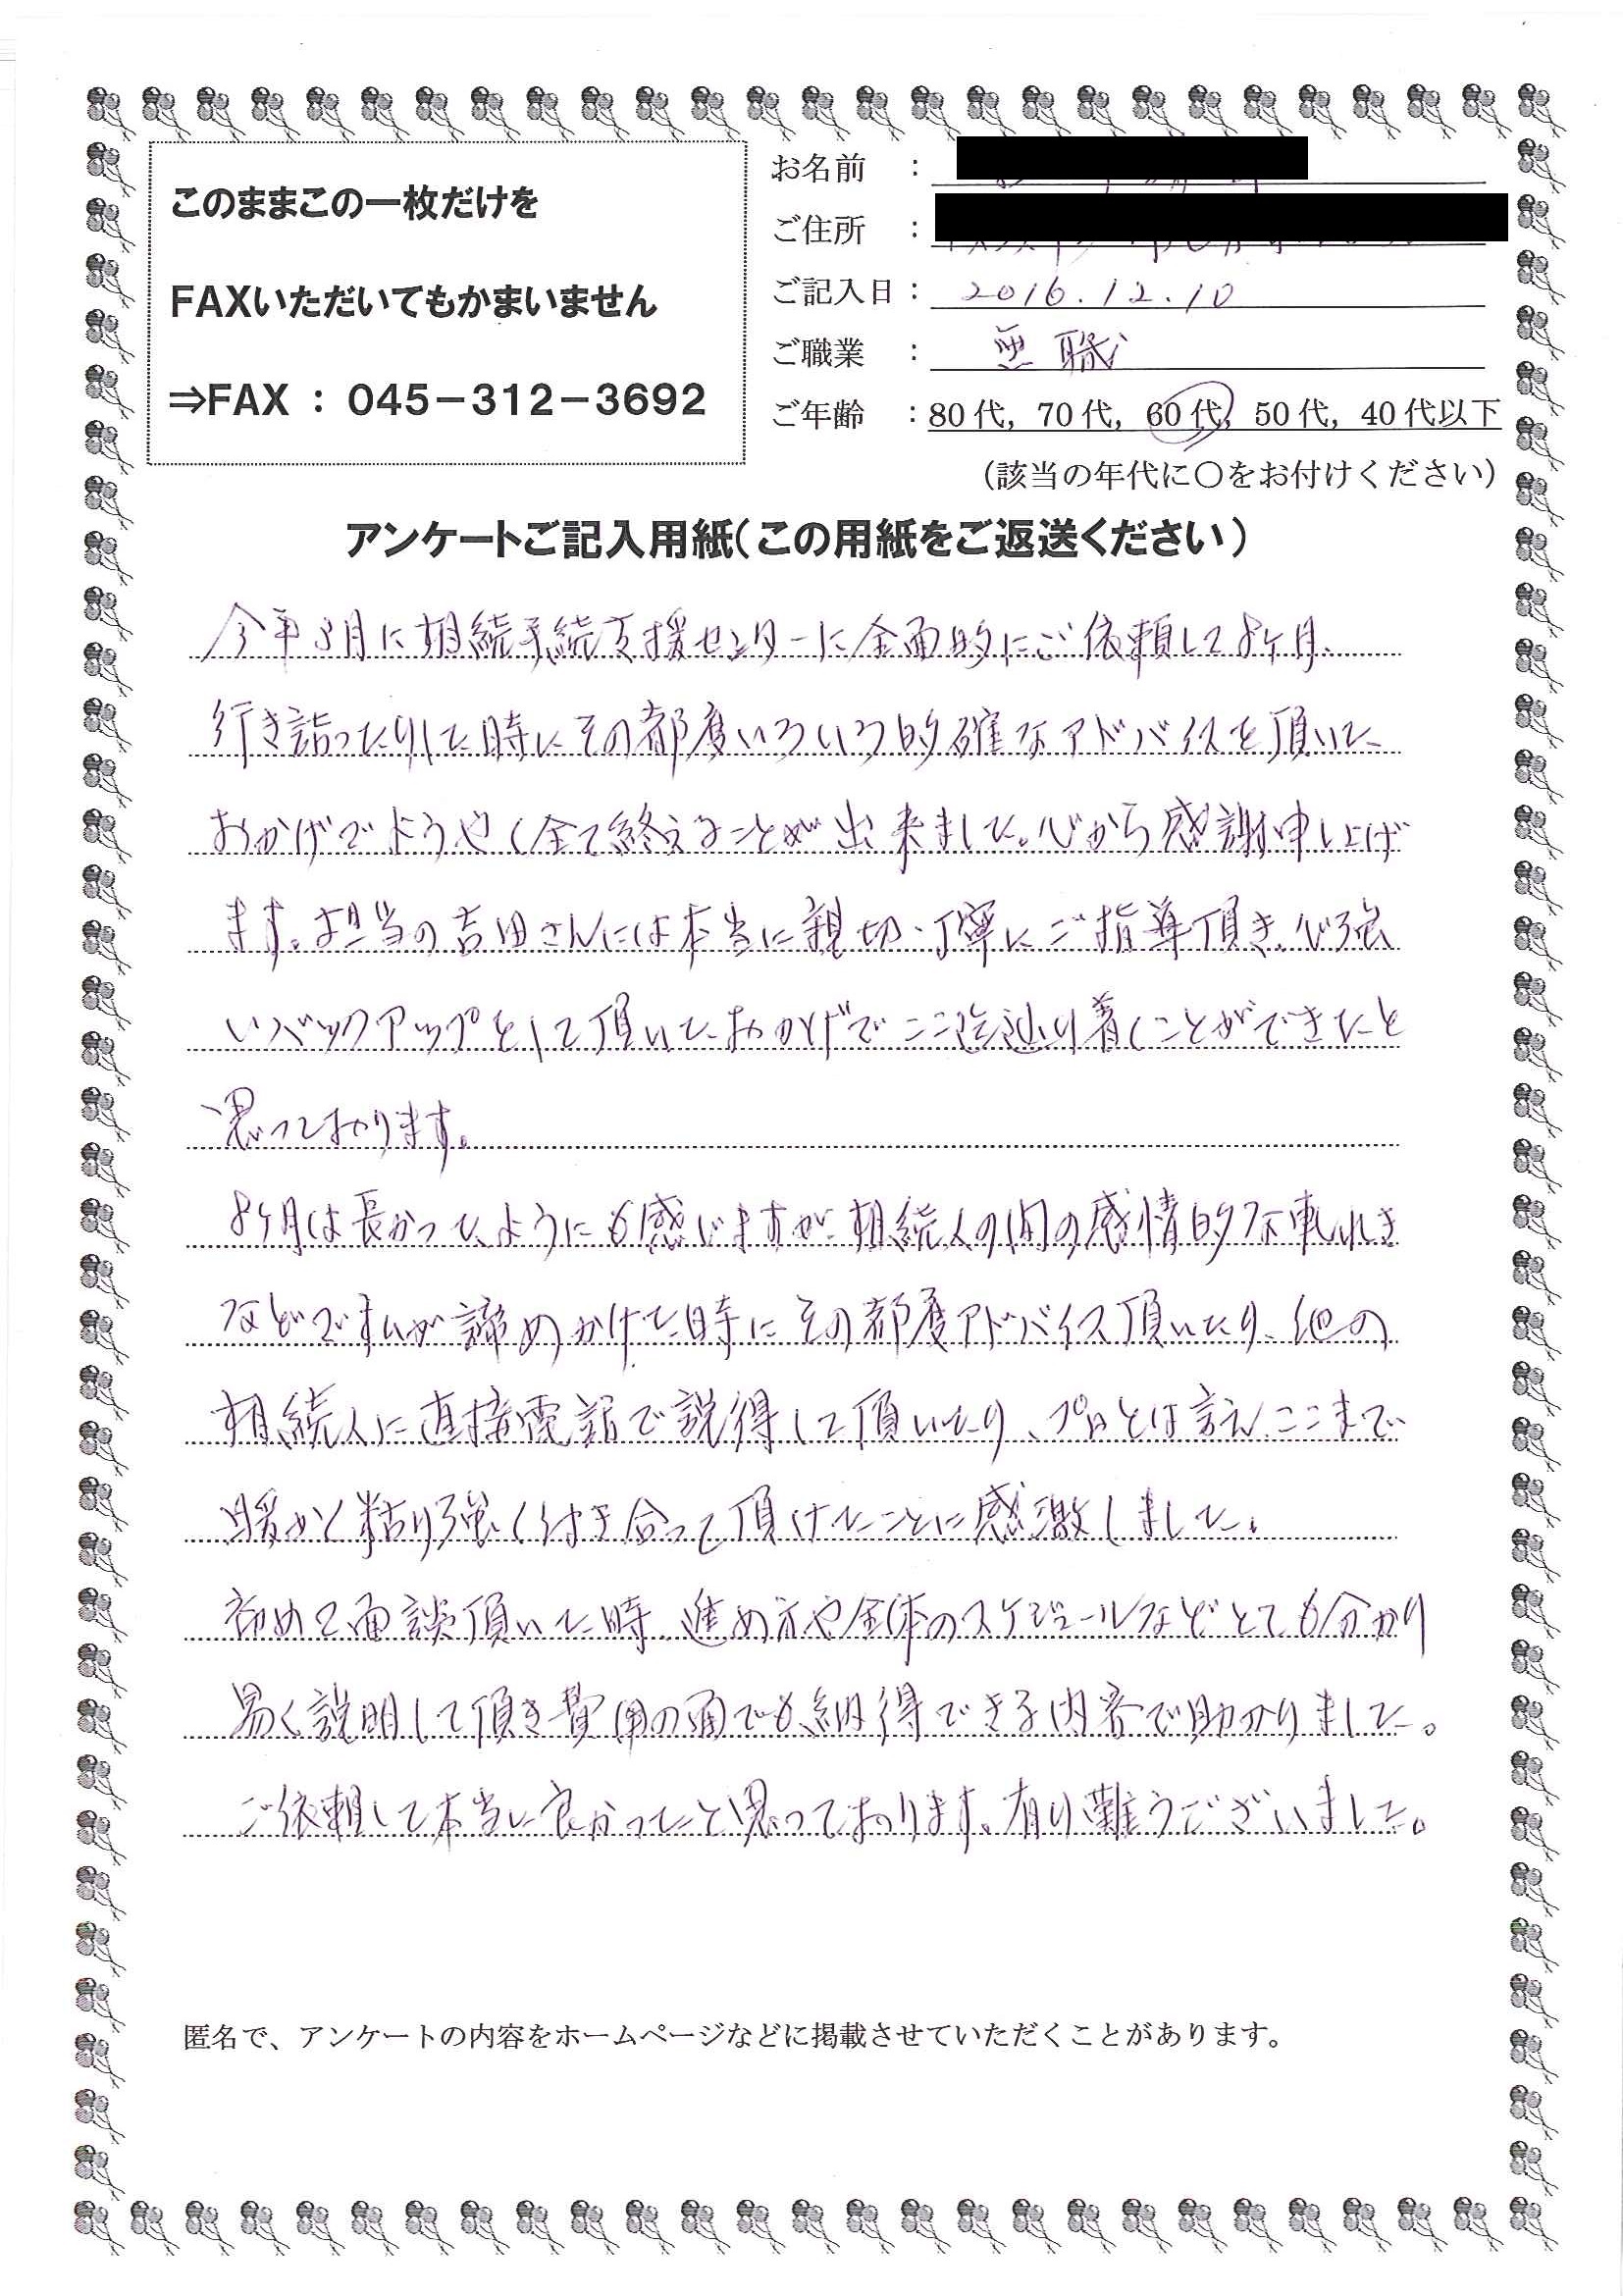 このままこの一枚だけを
FAXいただいてもかまいません
⇒FAX : 045-312-3692
お名前 :
ご住所 :
ご記入日 : 2016.12.10
ご職業 : 無職
ご年齢 : 80代, 70代, 60代, 50代, 40代以下
(該当の年代に○をお付けください)
アンケートご記入用紙(この用紙をご返送ください)
今年3月に相続手続支援センターに全面的にご依頼して8ケ月、
行き詰ったりした時にその都度いろいろ的確なアドバイスを頂いた
おかげでようやく全て終えることが出来ました。心から感謝申し上げ
ます。担当の吉田さんには本当に親切・丁寧にご指導頂き、心強
いバックアップをして頂いたおかげでここ迄辿り着くことができたと
思っております。
8ケ月は長かったようにも感じますが、相続人の間の感情的な軋轢
などで私が諦めかけた時にその都度アドバイス頂いたり、他の
相続人に直接電話で説得して頂いたり、プロとは言え、ここまで
暖かく粘り強く付き合って頂けたことに感激しました。
初めて面談頂いた時、進め方や全体のスケジュールなどとても分かり
易く説明して頂き費用の面でも納得できる内容で助かりました。
ご依頼して本当に良かったと思っております。有り難うございました。
匿名で、アンケートの内容をホームページなどに掲載させていただくことがあります。